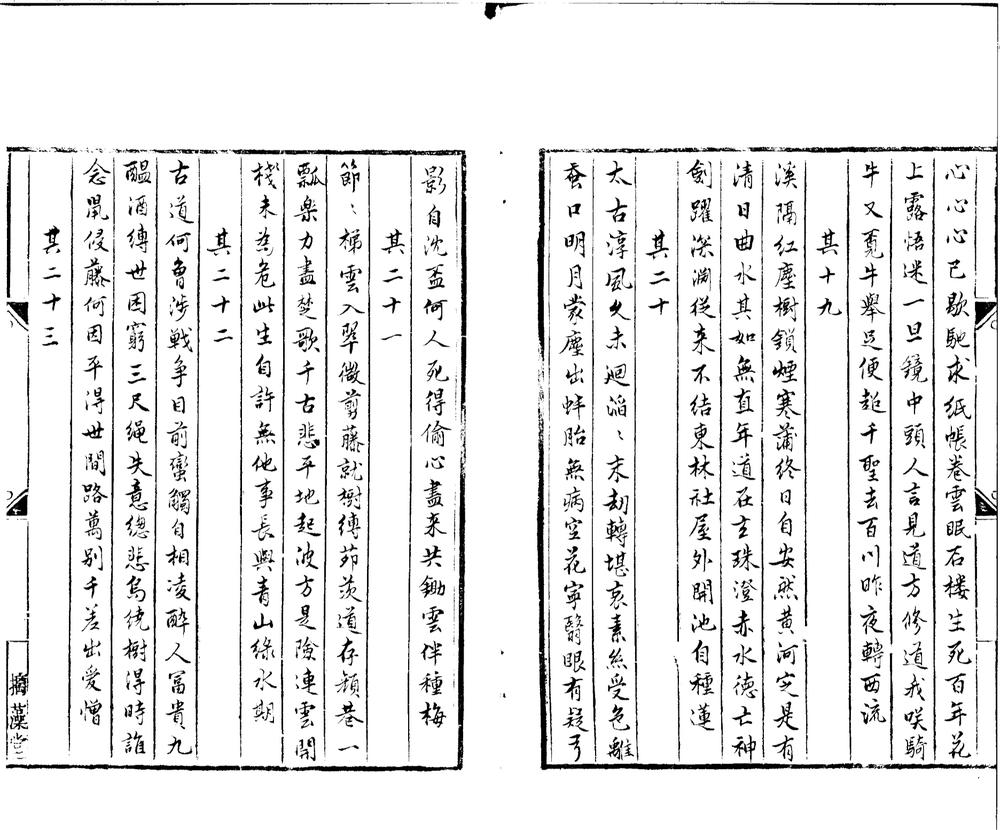 心心心已歇馳求紙帳卷雲眠石樓生死百年花
上露悟迷一旦鏡中頭人言見道方修道我咲騎
牛又覓牛舉足便超千聖去百川昨夜轉西流
其十九
溪隔紅塵樹鎖煙寒蒲終日自安然黃河實是有
清日曲水其如無直年道在玄珠澄赤水德亡神
劍躍深淵從来不结東林社屋外開池自種蓮
其二十
太古淳風久未迴滔〻末劫轉堪哀素絲受色離
蚕口明月蒙塵出蚌胎無病空花寧翳眼有疑弓
影自沈盃何人死得偷心盡来共鋤雲伴種梅
其二十一
節〻梯雲入翠微剪藤就樹縛茆茨道存顏巷一
瓢楽力盡楚歌千古悲平地起波方是險連雲開
棧未為危此生自許無他事長與青山綠水期
其二十二
古道何曾涉戰争目前蠻觸自相凌醉人富貴九
醞酒縛世困窮三尺繩失意總悲烏繞樹得時誰
念鼠侵藤何因平得世間路萬别千差出愛憎
其二十三
摛藻堂